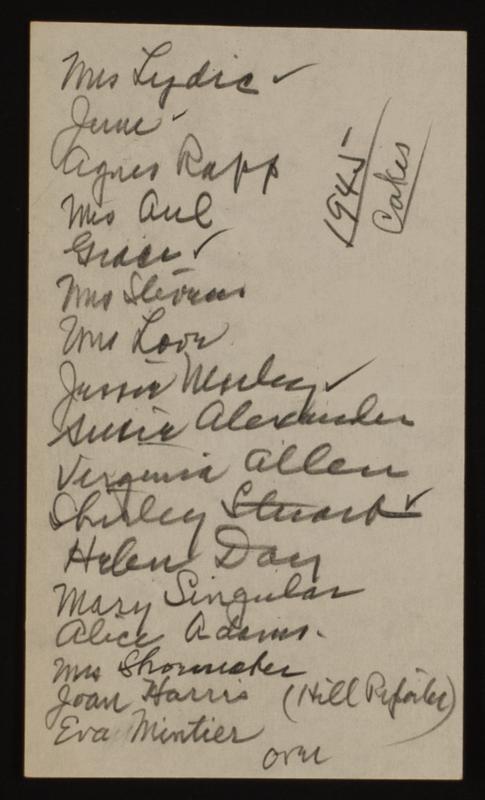 Mrs Lydic ✓
June ✓
Agnes Rapp
Mrs Aul
Grace ✓
Mrs Stevens
Mrs Love
Jessie Mosley ✓
Susie Alexander
Virginia Allen
Shirley Stuart ✓
Helen Day
Mary Singular
Alice Adams.
Mrs Shoemaker
Joan Harris (Hill Reporter)
Eva Mintier
over
1945
Cakes